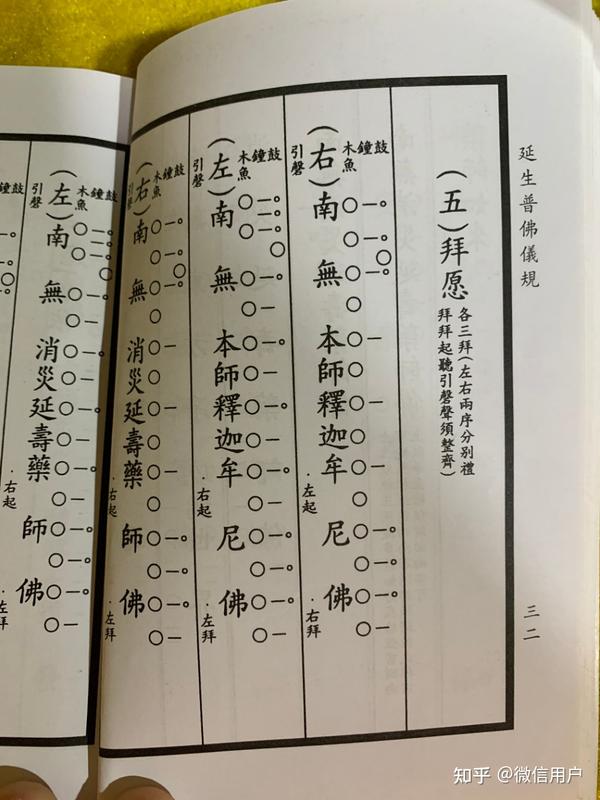 延生普佛儀規
三二
(五)拜愿
各三拜(左右兩序分別禮
拜拜起聽引磬聲須整齊)
鐘鼓
木魚
引磬
(右)南無本師釋迦牟尼佛
·左起
·右拜
鐘鼓
木魚
引磬
(左)南無本師釋迦牟尼佛
·右起
·左拜
鐘鼓
木魚
引磬
(右)南無消災延壽藥師佛
·右起
·左拜
鐘鼓
木魚
引磬
(左)南無消災延壽藥師佛
·右起
·左拜
知乎 @微信用户